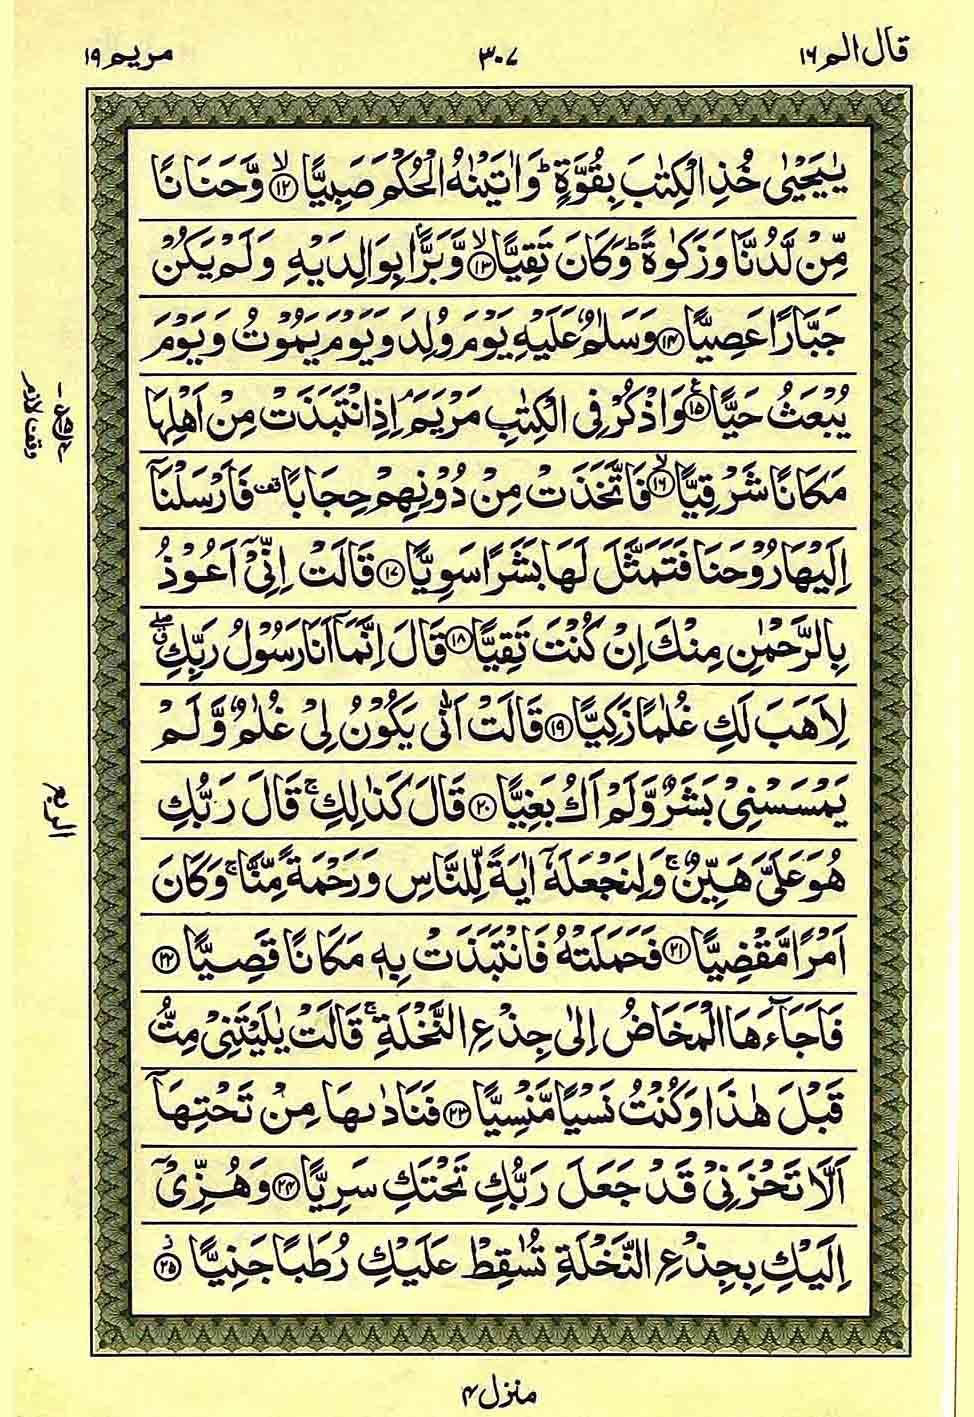 قال الم ١٦
٣٠٧
مريم ١٩
يٰيَحْيٰى خُذِ الْكِتٰبَ بِقُوَّةٍ ؕ وَاٰتَيْنٰهُ الْحُكْمَ صَبِيًّا ۙ‏﴿۱۲﴾ وَّحَنَانًا
مِّنْ لَّدُنَّا وَزَكٰوةً ؕ وَكَانَ تَقِيًّا ۙ‏﴿۱۳﴾ وَّبَرًّۢا بِوَالِدَيْهِ وَلَمْ يَكُنْ
جَبَّارًا عَصِيًّا ﴿۱۴﴾ وَسَلٰمٌ عَلَيْهِ يَوْمَ وُلِدَ وَيَوْمَ يَمُوْتُ وَيَوْمَ
يُبْعَثُ حَيًّا ﴿۱۵﴾ وَاذْكُرْ فِى الْكِتٰبِ مَرْيَمَ ۘ اِذِ انْتَبَذَتْ مِنْ اَهْلِهَا
وقف لازم
مَكَانًا شَرْقِيًّا ۙ‏﴿۱۶﴾ فَاتَّخَذَتْ مِنْ دُوْنِهِمْ حِجَابًا قف فَاَرْسَلْنَاۤ
اِلَيْهَا رُوْحَنَا فَتَمَثَّلَ لَهَا بَشَرًا سَوِيًّا ﴿۱۷﴾ قَالَتْ اِنِّىْۤ اَعُوْذُ
بِالرَّحْمٰنِ مِنْكَ اِنْ كُنْتَ تَقِيًّا ﴿۱۸﴾ قَالَ اِنَّمَاۤ اَنَا رَسُوْلُ رَبِّكِ ۖ
لِاَهَبَ لَكِ غُلٰمًا زَكِيًّا ﴿۱۹﴾ قَالَتْ اَنّٰى يَكُوْنُ لِىْ غُلٰمٌ وَّلَمْ
يَمْسَسْنِىْ بَشَرٌ وَّلَمْ اَكُ بَغِيًّا ﴿۲۰﴾ قَالَ كَذٰلِكِ ۚ قَالَ رَبُّكِ
الربع
هُوَ عَلَىَّ هَيِّنٌ ۚ وَلِنَجْعَلَهٗۤ اٰيَةً لِّلنَّاسِ وَرَحْمَةً مِّنَّا ۚ وَكَانَ
اَمْرًا مَّقْضِيًّا ﴿۲۱﴾ فَحَمَلَتْهُ فَانْتَبَذَتْ بِهٖ مَكَانًا قَصِيًّا ﴿۲۲﴾
فَاَجَآءَهَا الْمَخَاضُ اِلٰى جِذْعِ النَّخْلَةِ ۚ قَالَتْ يٰلَيْتَنِىْ مِتُّ
قَبْلَ هٰذَا وَكُنْتُ نَسْيًا مَّنْسِيًّا ﴿۲۳﴾ فَنَادٰىهَا مِنْ تَحْتِهَاۤ
اَلَّا تَحْزَنِىْ قَدْ جَعَلَ رَبُّكِ تَحْتَكِ سَرِيًّا ﴿۲۴﴾ وَهُزِّىْۤ
اِلَيْكِ بِجِذْعِ النَّخْلَةِ تُسٰقِطْ عَلَيْكِ رُطَبًا جَنِيًّا ﴿۲۵﴾
منزل ۴